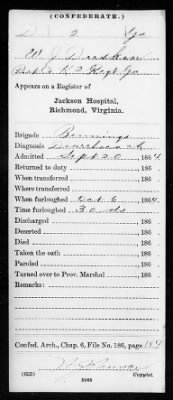 (CONFEDERATE.)
D 2 Ga
W. J.
Appears on a Register of
Jackson Hospital,
Richmond, Virginia.
Brigade Bennings
Diagnosis Diarrhoea ch
Admitted Sept 20, 1864
Returned to duty, 186
When transferred, 186
Where transferred
When furloughed Oct 6, 1864
Time furloughed 30 ds
Discharged, 186
Deserted, 186
Died, 186
Taken the oath, 186
Paroled, 186
Turned over to Prov. Marshal, 186
Remarks:
Confed. Arch., Chap. 6, File No. 186, page 184
(635)
Copyist.